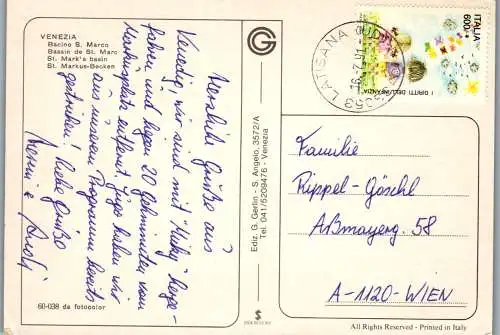 VENEZIA
Bacino S. Marco
Bassin de St. Marc
St. Mark's basin
St. Markus-Becken
Herzliche Grüße aus
Venedig, wir sind mit "Kiky" herge-
fahren und liegen 20 Gehminuten vom
Markusplatz entfernt. Jugo haben wir
aus unserem Programm bereits
gestrichen! Liebe Grüße
60-038 da fotocolor
G
Ediz. G. Gerlin - S. Angelo, 3572/A
Tel. 041/5209476 - Venezia
33053 LATISANA (UD)
ITALIA
600
I DIRITTI DELL'INFANZIA
Familie
Rippel-Göschl
Aßmayerg. 58
A-1120-WIEN
All Rights Reserved - Printed in Italy